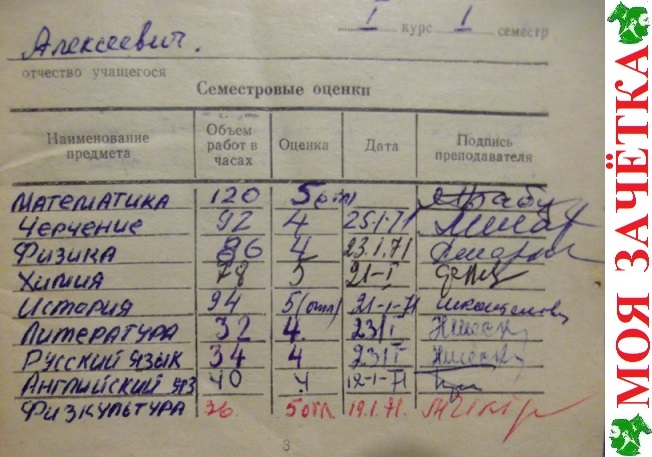 I курс I семестр
Алексеевич.
отчество учащегося
Семестровые оценки
Наименование предмета Объем работ в часах Оценка Дата Подпись преподавателя
Математика 120 5 отл
Черчение 92 4 25.1.71
Физика 86 4 23.1.71
Химия 78 5 21-I
История 94 5 (отл) 21-1-71
Литература 32 4. 23/I
Русский язык 34 4 23/I
Английский яз 40 4 12-1-71
Физкультура 26. 5 отл. 19.1.71.
3
МОЯ ЗАЧЁТКА